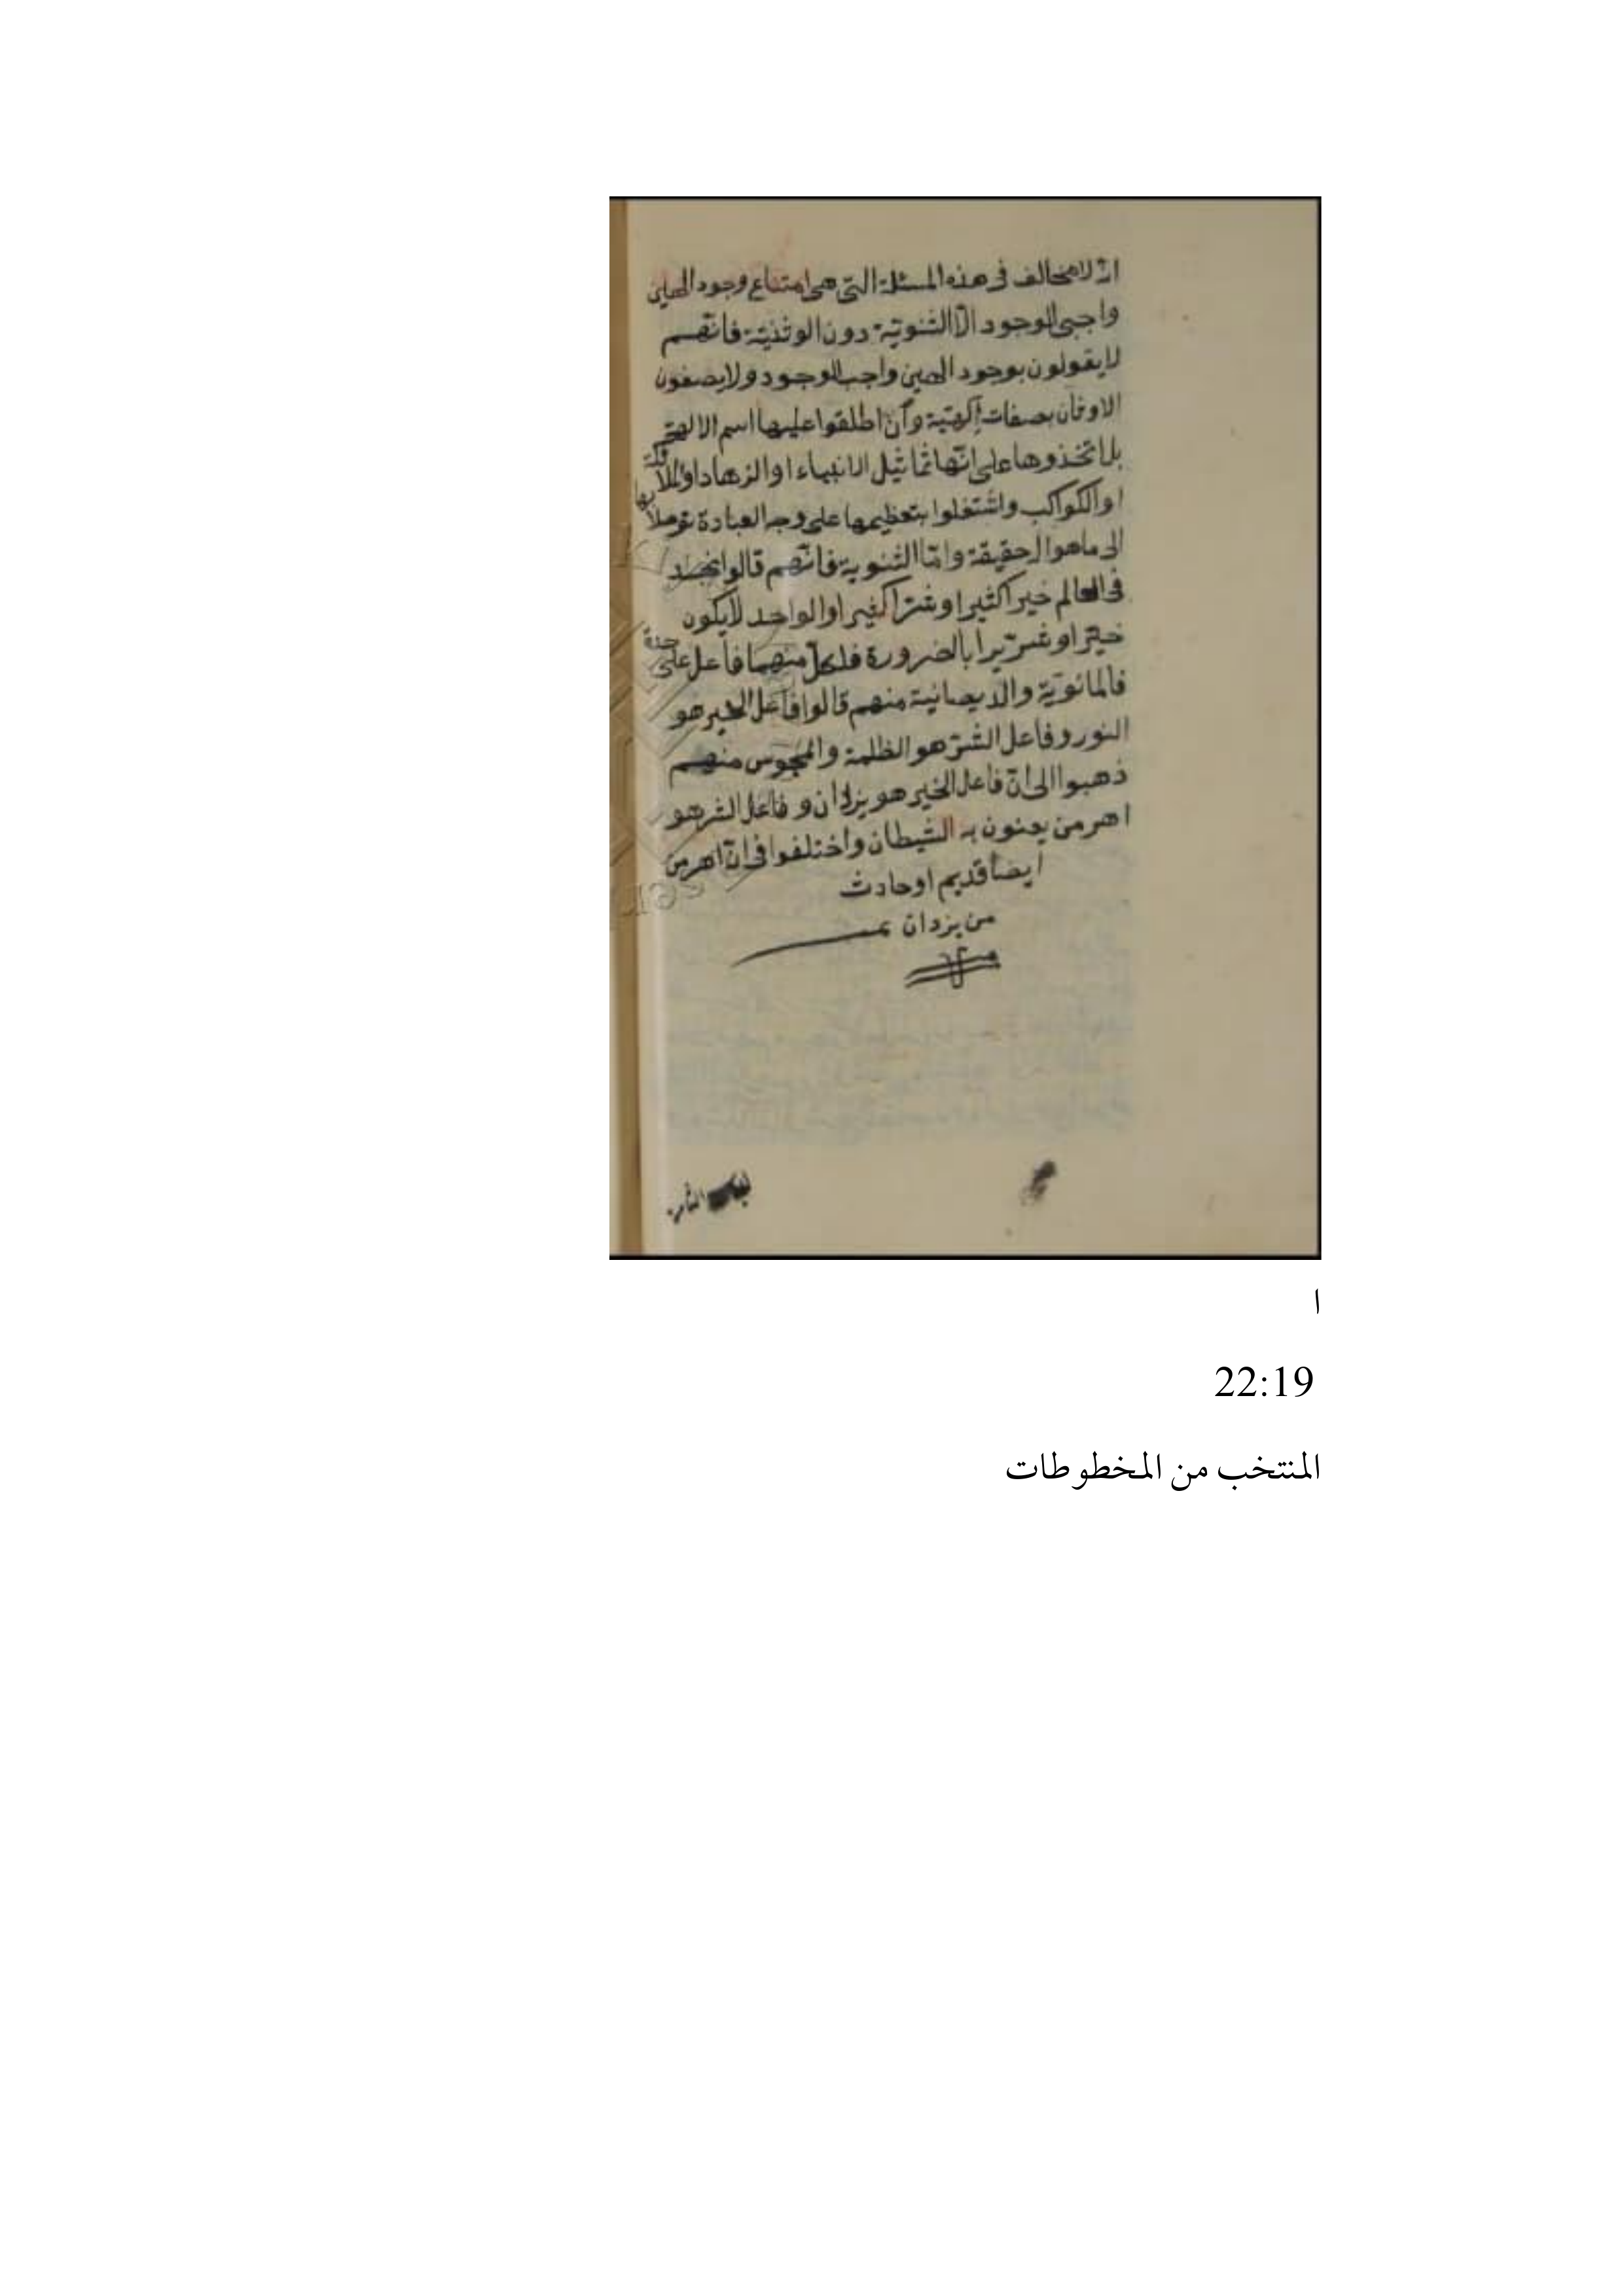 انّه لا مخالف فى هذه المسئلة التى هى امتناع وجود الهين
واجبى الوجود الّا الثنويّة دون الوثنيّة فانّهم
لا يقولون بوجود الهين واجبى الوجود ولا يصفون
الاوثان بصفات إلهيّة وأن اطلقوا عليها اسم الالهة
بل اتخذوها على انّها تماثيل الانبياء او الزهاد او الملائكة
او الكواكب واشتغلوا بتعظيمها على وجه العبادة توصلا بها
الى ما هو اله حقيقة وامّا الثنوية فانّهم قالوا نجد
فى العالم خيرا كثيرا وشرّا كثيرا والواحد لا يكون
خيّرا وشرّيرا بالضرورة فلكلّ منهما فاعل على حدة
فالمانويّة والديصانية منهم قالوا فاعل الخير هو
النور وفاعل الشرّ هو الظلمة والمجوس منهم
ذهبوا الى انّ فاعل الخير هو يزدان وفاعل الشر هو
اهرمن يعنون به الشيطان واختلفوا فى انّ اهرمن
ايضا قديم او حادث
من يزدان
ا
22:19
المنتخب من المخطوطات